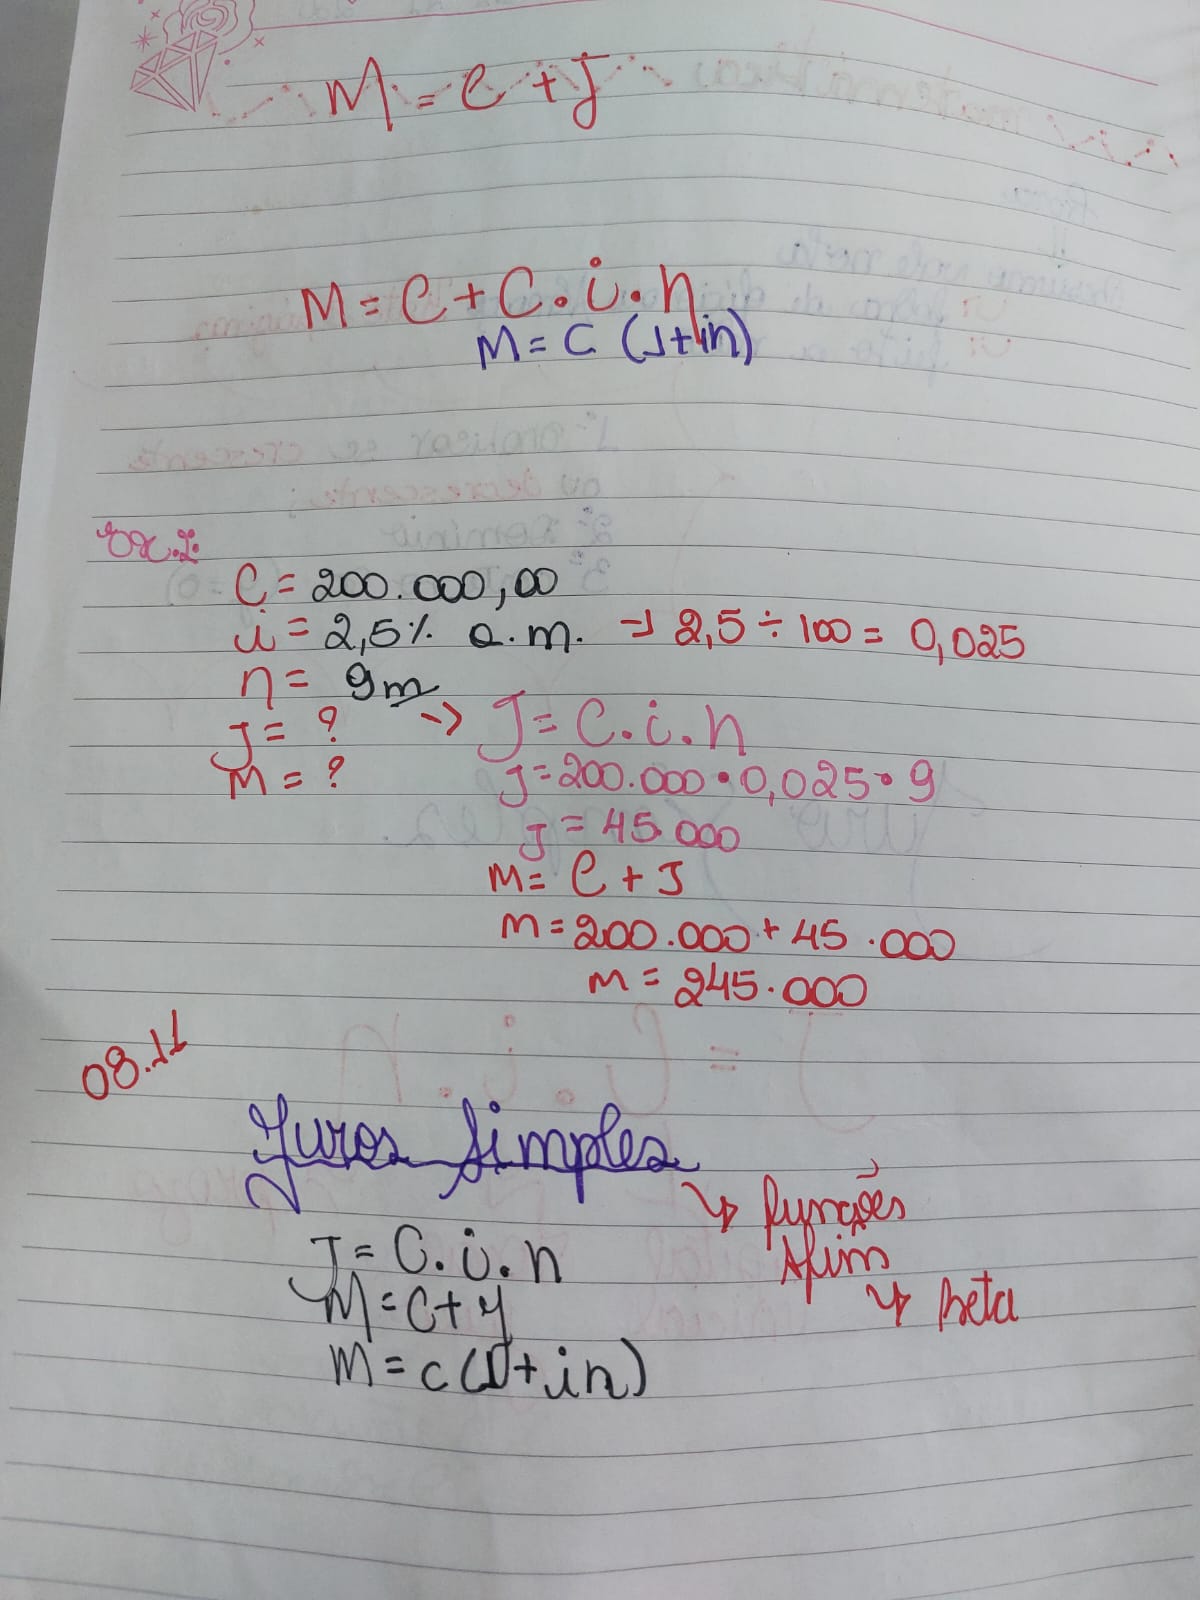 M = C + J
M = C + C . i . n
M = C (1+in)
Ex. 2:
C = 200.000,00
i = 2,5% a.m. → 2,5 ÷ 100 = 0,025
n = 9m
J = ? -> J = C.i.n
M = ? J = 200.000 • 0,025 • 9
J = 45.000
M = C + J
M = 200.000 + 45.000
M = 245.000
08.11
Juros Simples
↳ funções
J = C.i.n Afim
M = C + J ↳ Reta
M = C (1+in)